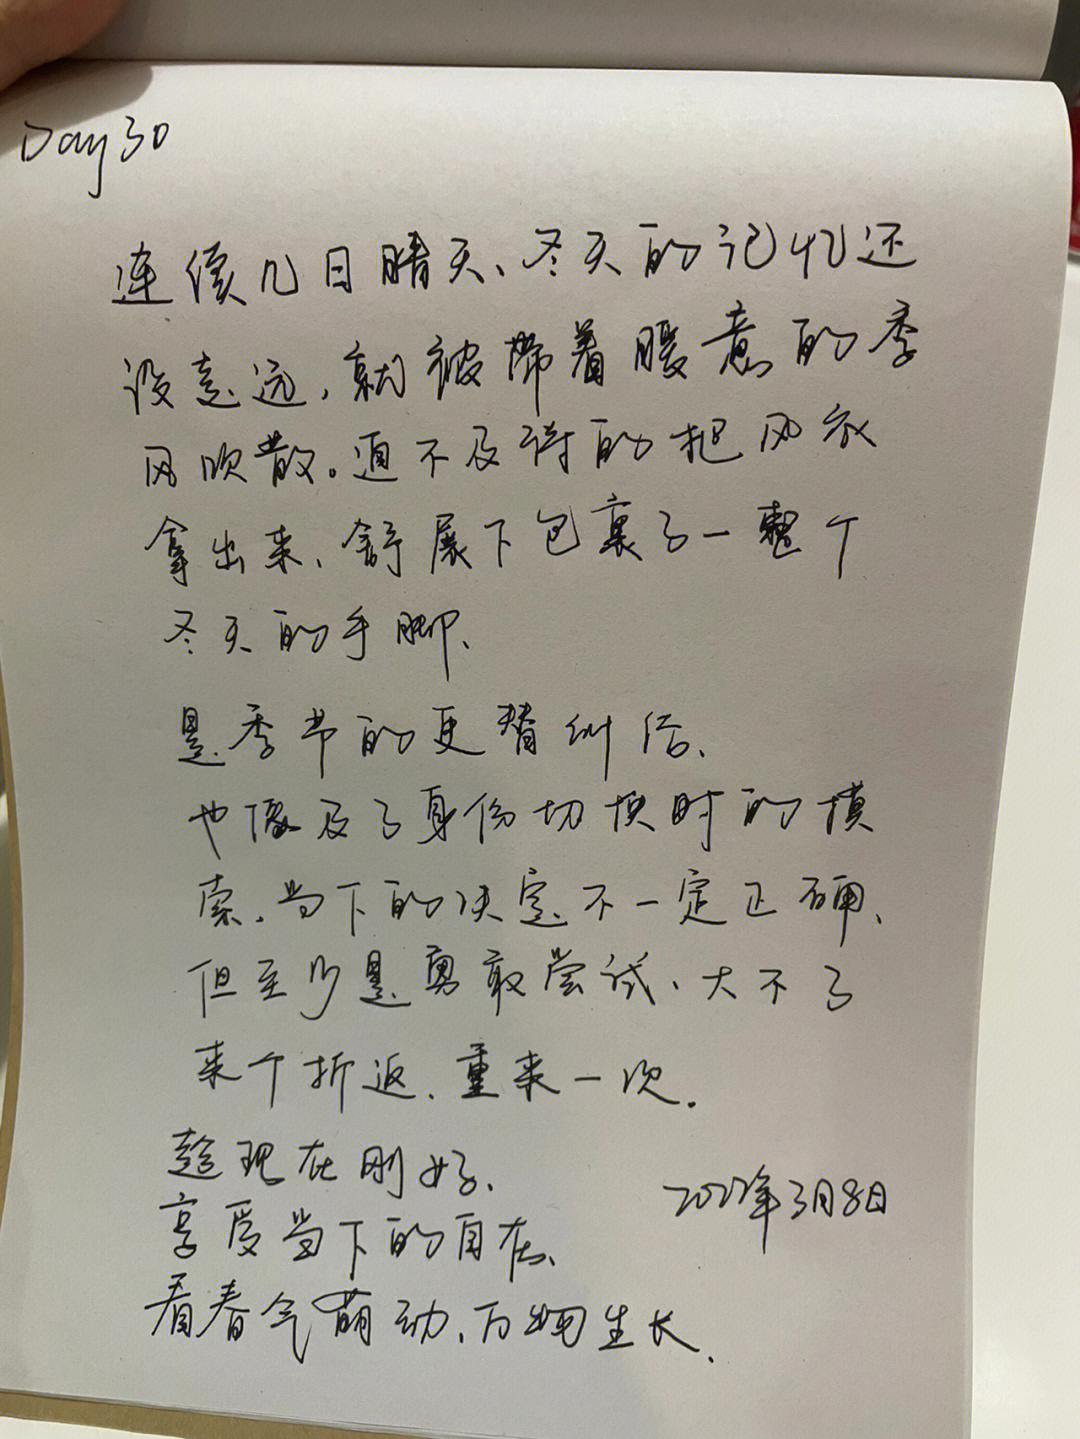 Day 30
连续几日晴天、冬天的记忆还
没走远,就被带着暖意的季
风吹散。迫不及待的把风衣
拿出来、舒展下包裹了一整个
冬天的手脚、
是季节的更替纠结、
也像及了身份切换时的摸
索、当下的决定不一定正确、
但至少是勇敢尝试、大不了
来个折返、重来一次.
趁现在刚好、
享受当下的自在、
2022年3月8日
看春气萌动、万物生长.